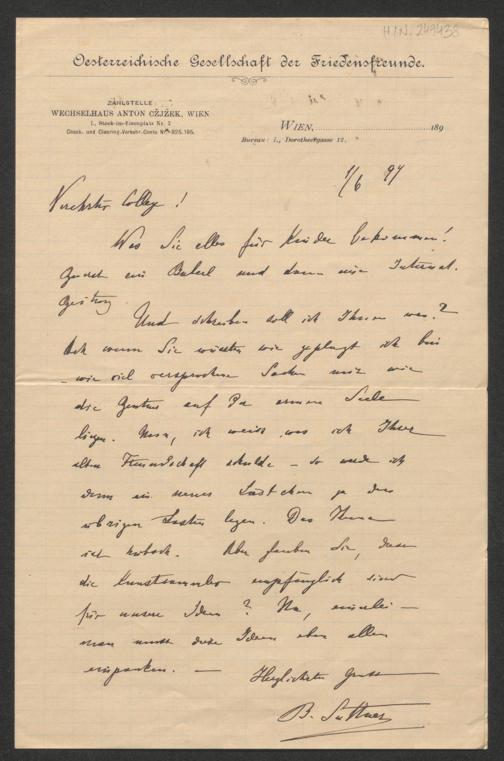 H.I.N. 249438
Oesterreichische Gesellschaft der Friedensfreunde.
ZAHLSTELLE:
WECHSELHAUS ANTON CŽJŽEK, WIEN
I., Stock-im-Eisenplatz Nr. 2
Check- und Clearing-Verkehr-Conto Nr. 825.195.
WIEN, 189
Bureau: I., Dorotheergasse 12.
1/6 97
Verehrter College!
Was Sie alles für Kinder bekommen!
Zuerst ein und dann eine Internat.
Zeitung.
Und schreiben soll ich Ihnen was?
Ach wenn Sie wüssten wie geplagt ich bin
– wie viel versprochene Sachen mir wie
die auf der armen Seele
liegen. Nun, ich weiss was ich Ihrer
alten Freundschaft schulde – so werde ich
denn ein neues Lästchen zu den
übrigen Lasten legen. Das Thema
ist hübsch. Aber glauben Sie, dass
die Kunstsammler empfänglich sind
für unsere Ideen? Na, einerlei –
man muss diese Ideen eben allen
einpauken. –
Herzlichsten Gruss
B. Suttner